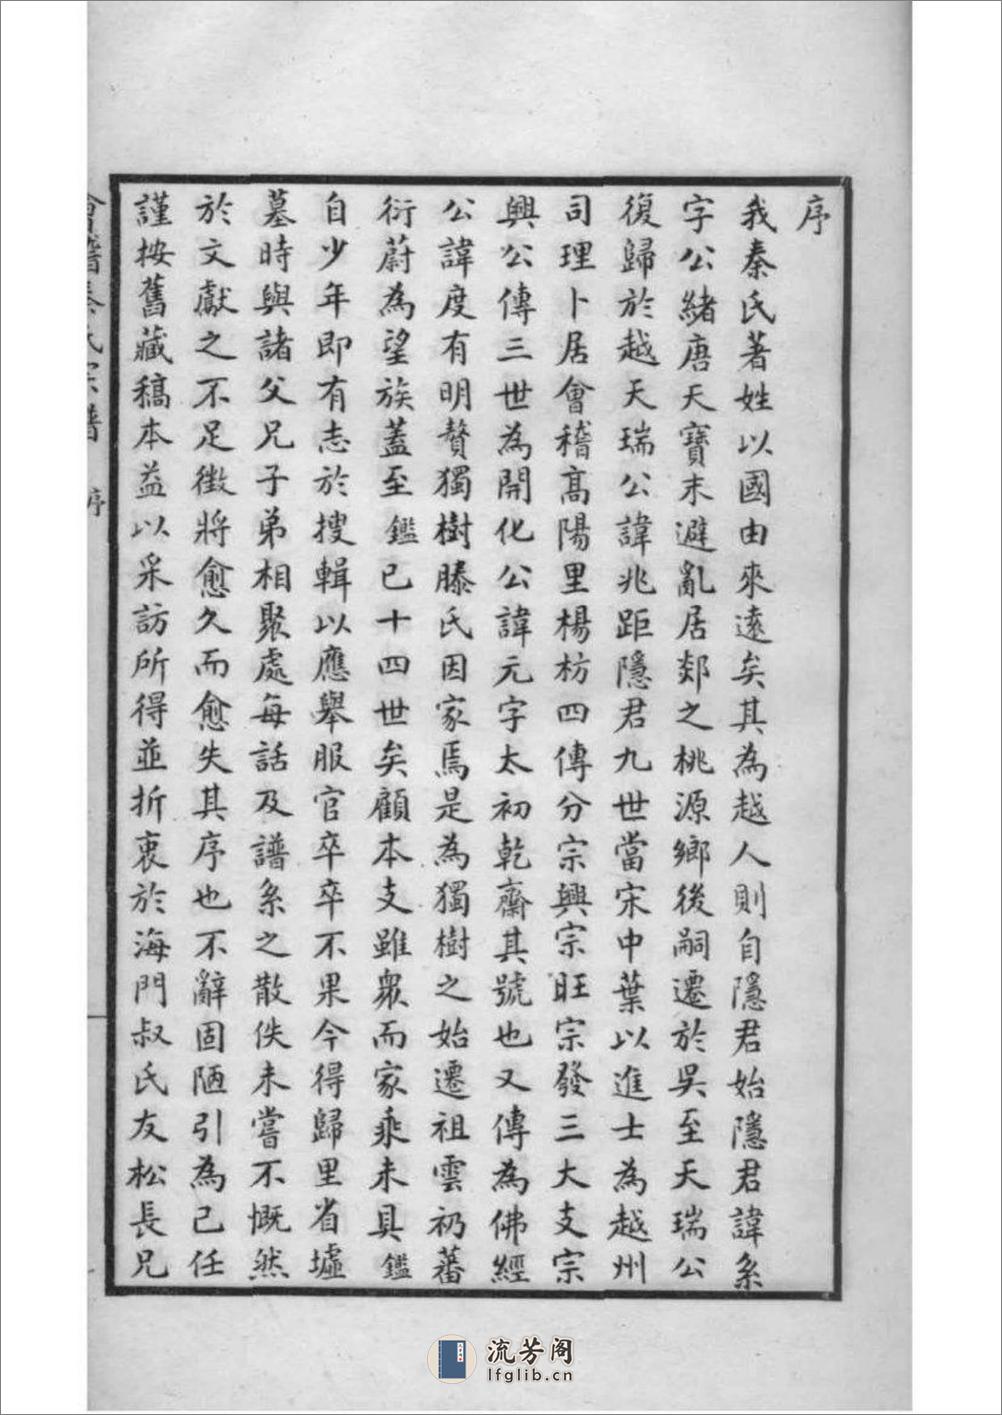 序
我秦氏著姓以國由來遠矣其為越人則自隱君始隱君諱系
字公緒唐天寶末避亂居郯之桃源鄉後嗣遷於吳至天瑞公
復歸於越天瑞公諱兆距隱君九世當宋中葉以進士為越州
司理卜居會稽高陽里楊枋四傳分宗興宗旺宗發三大支宗
興公傳三世為開化公諱元字太初乾齋其號也又傳為佛經
公諱度有明贅獨樹滕氏因家焉是為獨樹之始遷祖雲礽蕃
衍蔚為望族蓋至鑑已十四世矣顧本支雖衆而家乘未具鑑
自少年即有志於搜輯以應舉服官卒卒不果今得歸里省墟
墓時與諸父兄子弟相聚處每話及譜系之散佚未嘗不慨然
於文獻之不足徵將愈久而愈失其序也不辭固陋引為己任
謹按舊藏稿本益以采訪所得並折衷於海門叔氏友松長兄
會稽秦氏宗譜 序
流芳阁
lfglib.cn